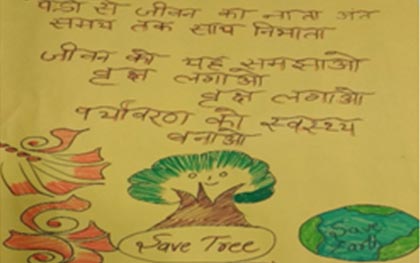 पेड़ो से जीवन का नाता अंत
समय तक साथ निभाता
जीवन को यह समझाओ
वृक्ष लगाओ
वृक्ष लगाओ
पर्यावरण को स्वस्थ्य
बनाओ
Save Tree
Save
Earth